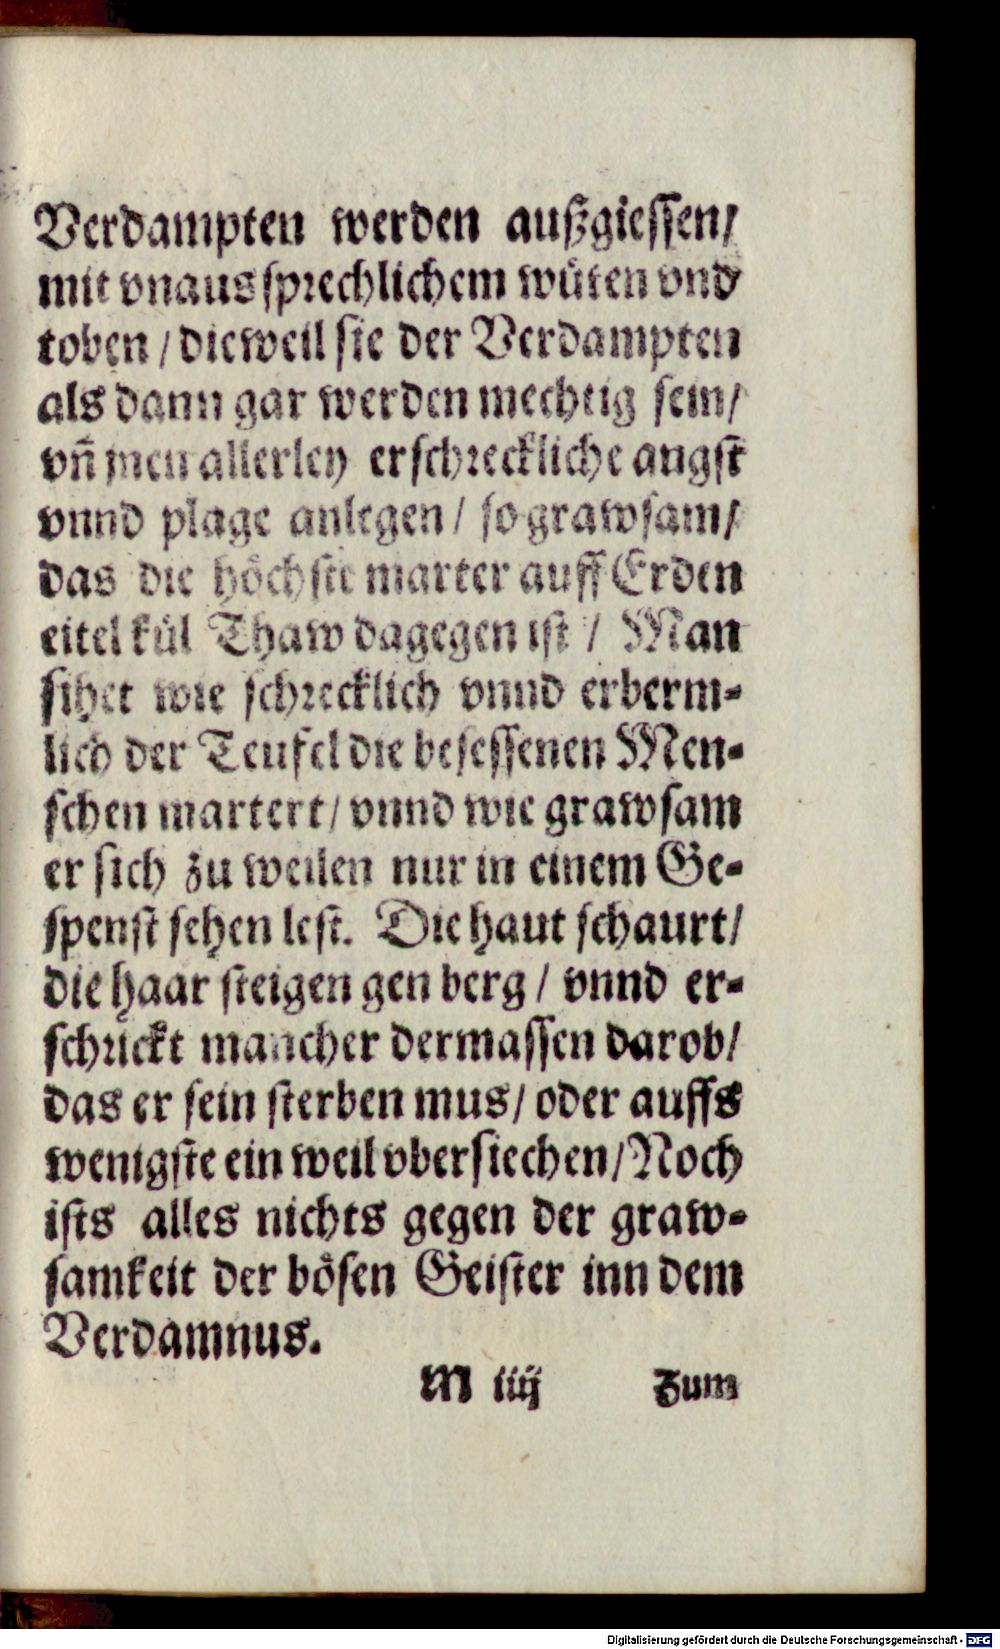 Verdampten werden außgiessen/
mit vnaussprechlichem wüten vnd
toben / dieweil sie der Verdampten
als dann gar werden mechtig sein/
vñ jnen allerley erschreckliche angst
vnnd plage anlegen / so grawsam/
das die höchste marter auff Erden
eitel kül Thaw dagegen ist / Man
sihet wie schrecklich vnnd erberm-
lich der Teufel die besessenen Men-
schen martert/ vnnd wie grawsam
er sich zu weilen nur in einem Ge-
spenst sehen lest. Die haut schaurt/
die haar steigen gen berg / vnnd er-
schrickt mancher dermassen darob/
das er sein sterben mus/ oder auffs
wenigste ein weil vbersiechen/ Noch
ists alles nichts gegen der graw-
samkeit der bösen Geister inn dem
Verdamnus.
M iiij Zum
Digitalisierung gefördert durch die Deutsche Forschungsgemeinschaft - DFG